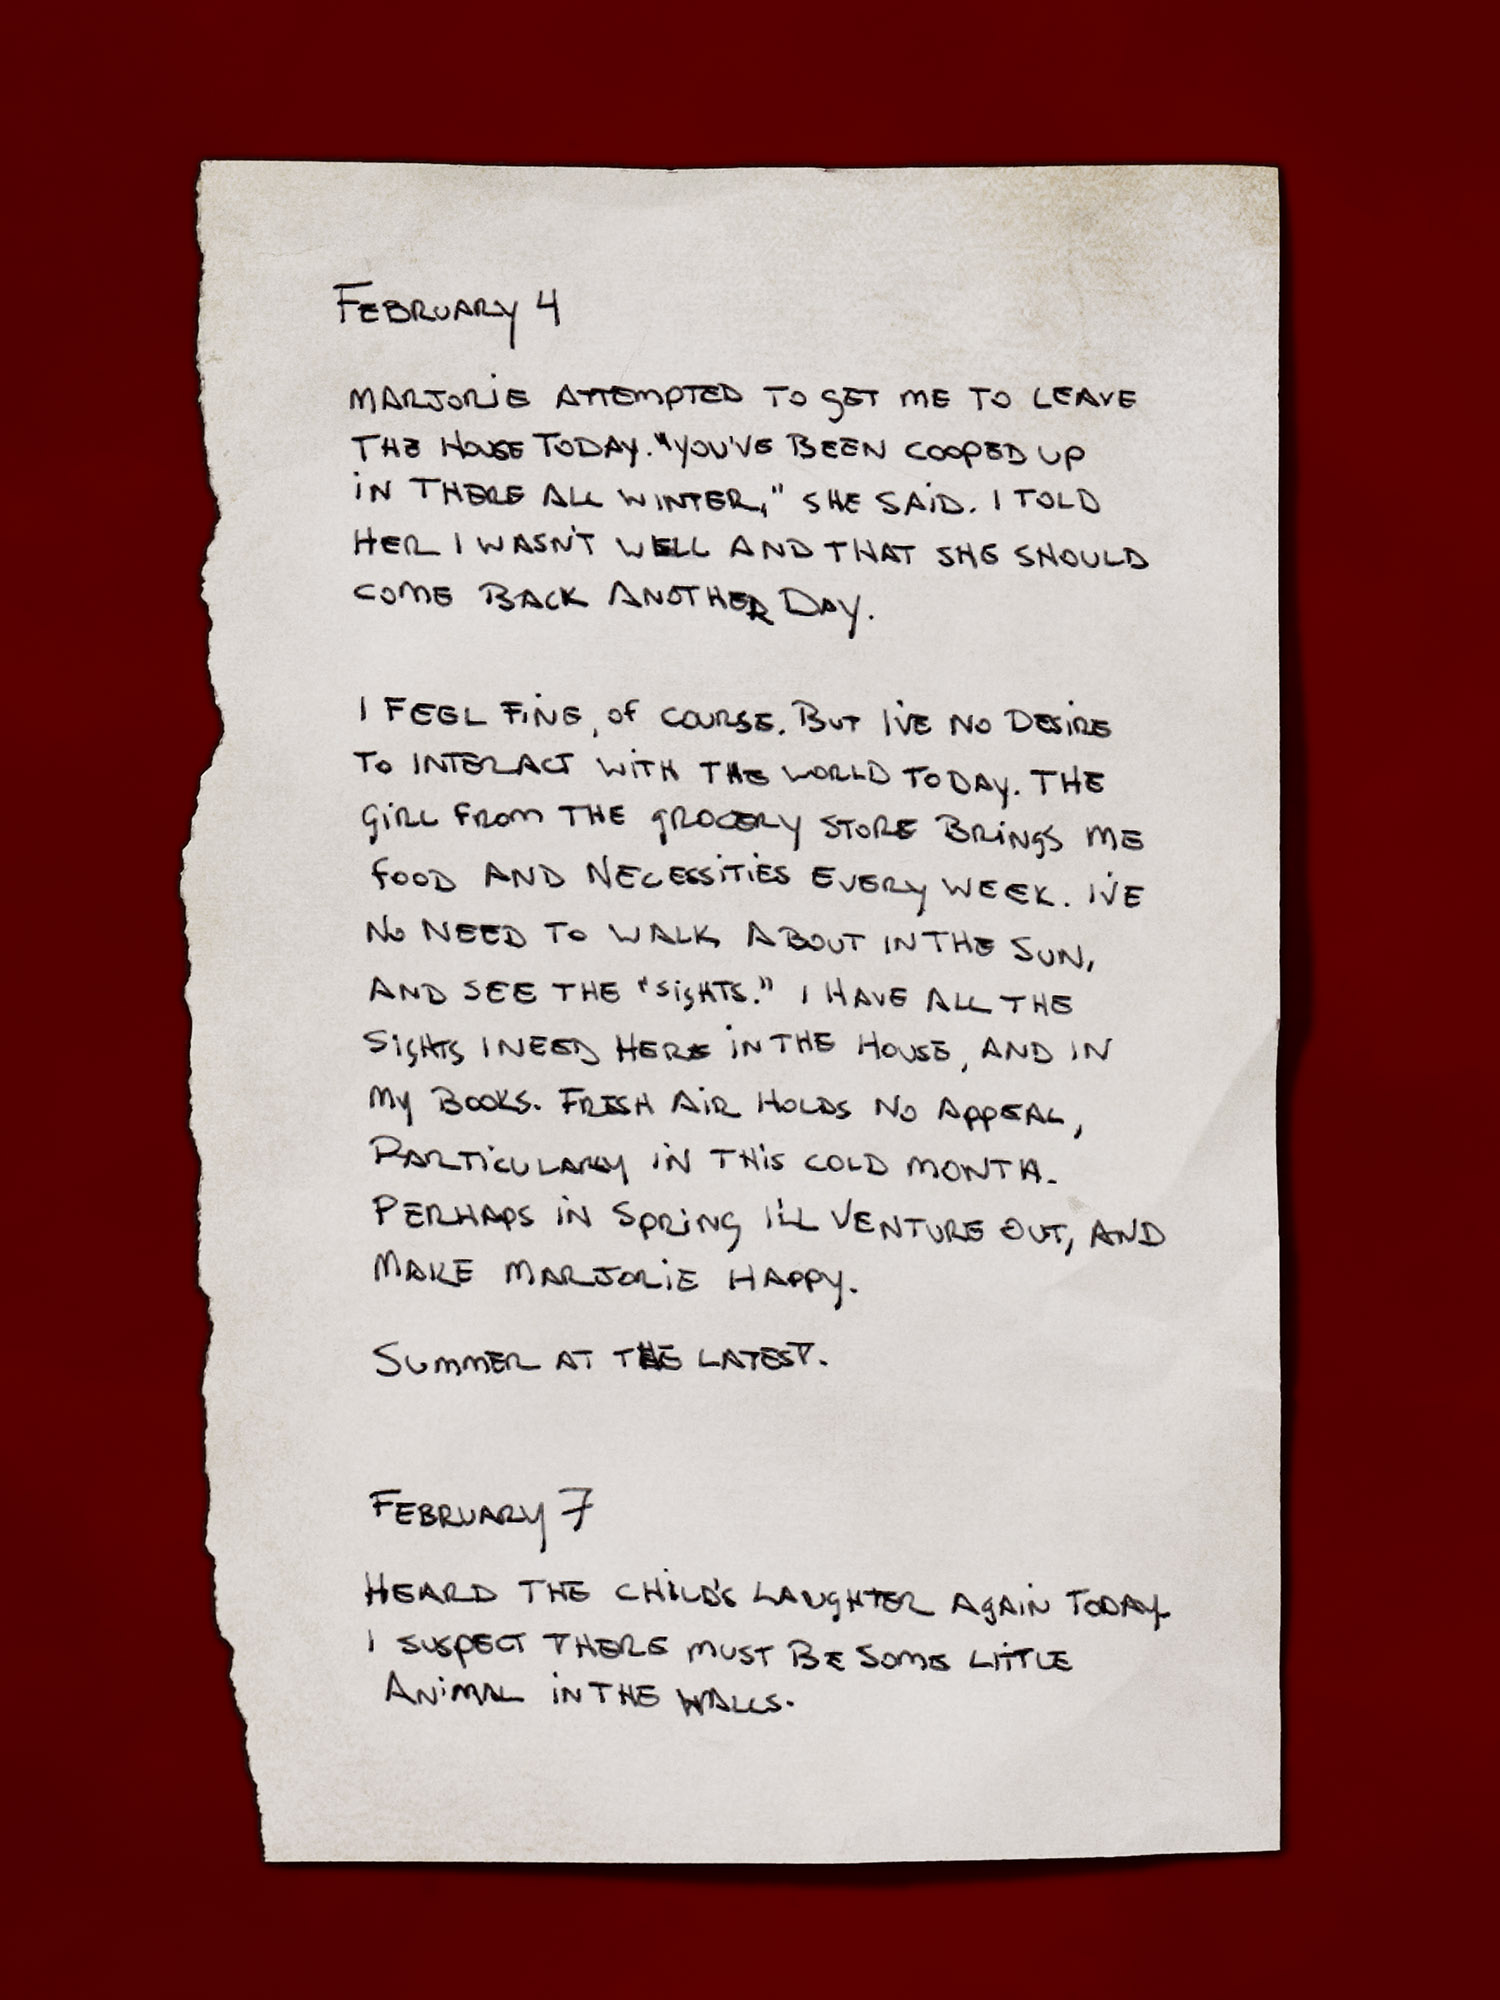 FEBRUARY 4
MARJORIE ATTEMPTED TO GET ME TO LEAVE
THE HOUSE TODAY. "YOU'VE BEEN COOPED UP
IN THERE ALL WINTER," SHE SAID. I TOLD
HER I WASN'T WELL AND THAT SHE SHOULD
COME BACK ANOTHER DAY.
I FEEL FINE, OF COURSE. BUT I'VE NO DESIRE
TO INTERACT WITH THE WORLD TODAY. THE
GIRL FROM THE GROCERY STORE BRINGS ME
FOOD AND NECESSITIES EVERY WEEK. I'VE
NO NEED TO WALK ABOUT IN THE SUN,
AND SEE THE "SIGHTS." I HAVE ALL THE
SIGHTS I NEED HERE IN THE HOUSE, AND IN
MY BOOKS. FRESH AIR HOLDS NO APPEAL,
PARTICULARLY IN THIS COLD MONTH.
PERHAPS IN SPRING I'LL VENTURE OUT, AND
MAKE MARJORIE HAPPY.
SUMMER AT THE LATEST.
FEBRUARY 7
HEARD THE CHILD'S LAUGHTER AGAIN TODAY.
I SUSPECT THERE MUST BE SOME LITTLE
ANIMAL IN THE WALLS.